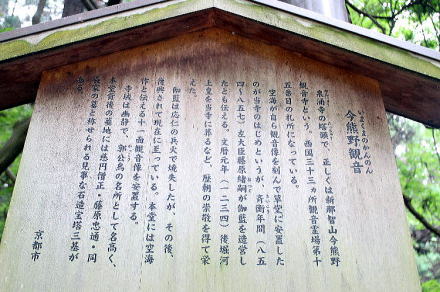 いまくまのかんのん
今熊野観音
泉涌寺の塔頭で、正しくは新那智山今熊野
観音寺という。西国三十三ヵ所観音霊場第十
五番目の札所になっている。
空海が自ら観音像を刻んで草堂に安置した
のが当寺のはじめというが、斉衡年間(八五
四〜八五七)左大臣藤原緒嗣が伽藍を造営し
たとも伝える。文暦元年(一二三四)後堀河
上皇を当寺に葬るなど、歴朝の崇敬を得て栄
えた。
伽藍は応仁の兵火で焼失したが、その後、
復興されて現在に至っている。本堂には空海
作と伝える十一面観音像を安置する。
寺域は幽静で、郭公鳥の名所として名高く、
本堂背後の墓地には慈円僧正・藤原忠通・同
長家の墓と称せられる見事な石造宝塔三基が
ある。
京都市